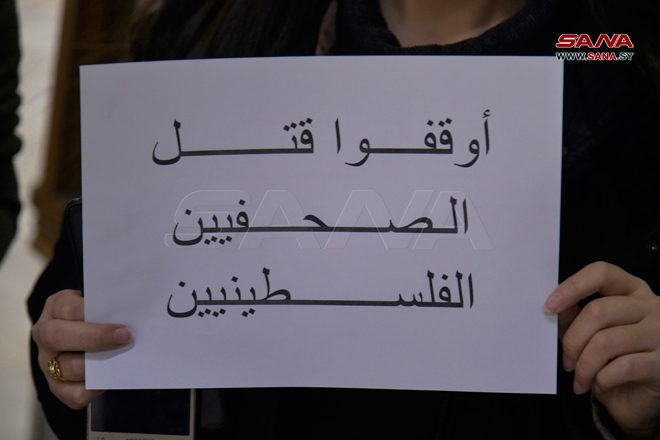 SANA
WWW.SANA.SY
أوقفوا قتل
الصحفيين
الفلسطينيين
SANA